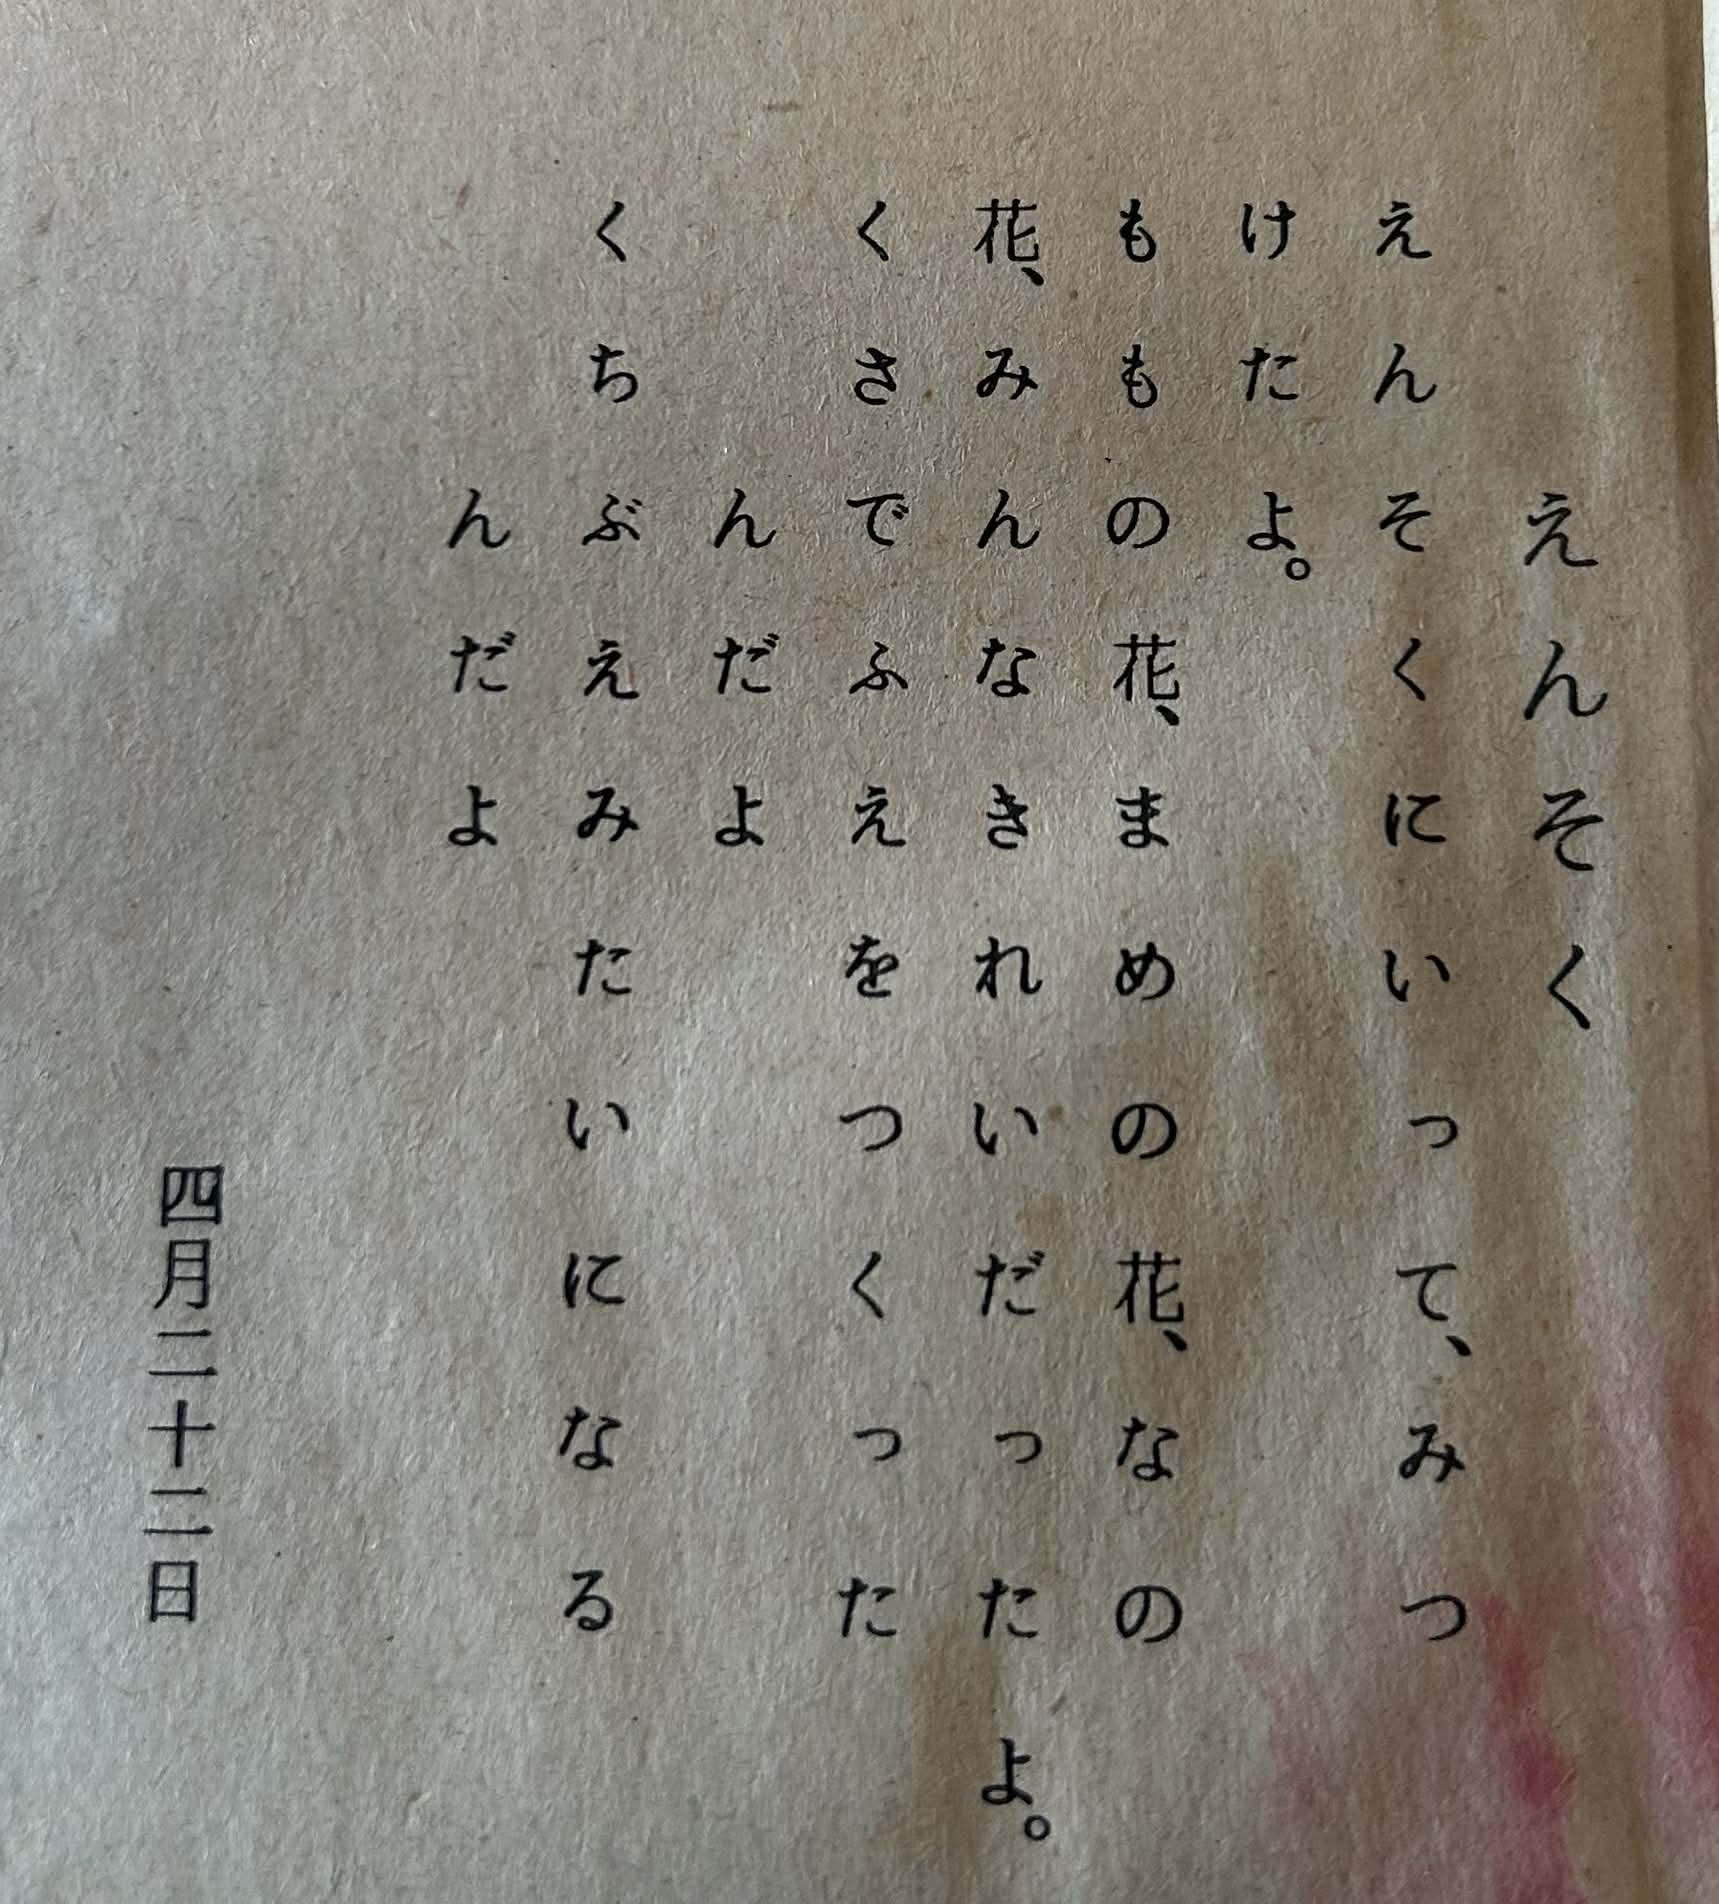 えんそく
えんそくにいって、みつ
けたよ。
ももの花、まめの花、なの
花、みんなきれいだったよ。
くさでふえをつくった
んだよ
くちぶえみたいになる
んだよ
四月二十二日